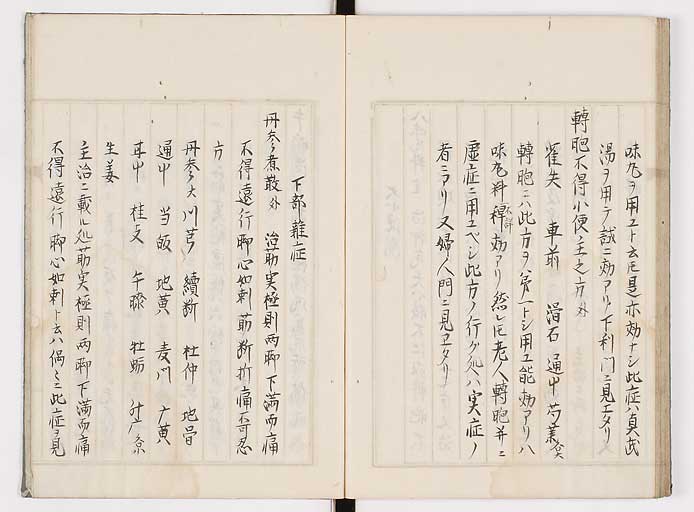 味丸ヲ用ユト云𪜈是亦効ナシ此症ハ真武
湯ヲ用テ誠ニ効アリ下利門ニ見エタリ
轉胞不得小便主之方 外
車前 滑石 通中
轉胞ニハ此方ヲ第一トシ用ユ能効アリ八
味丸料 効アリ然レ𪜈老人轉胞并ニ
虚症ニ用ユベシ此方ノ行ク処ハ実症ノ
者ニアリ又婦人門ニ見ヱタリ
下部雜症
丹参煮散 外 治筋実極則両脚下満而痛
不得遠行脚心如刺筋断折痛不可忍
方
丹参大 川芎 續断 杜仲 地骨
通中 当皈 地黄 麦門
桂支 牡蛎
生姜
主治ニ載ル処筋実極則両脚下満而痛
不得遠行脚心如刺ト云ハ偶々ニ此症ヲ見